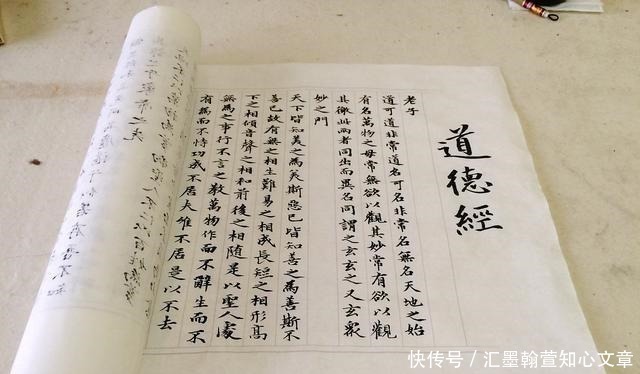 道德經
老子
道可道非常道名可名非常名無名天地之始
有名萬物之母常無欲以觀其妙常有欲以觀
其徼此兩者同出而異名同謂之玄玄之又玄衆
妙之門
天下皆知美之為美斯惡已皆知善之為善斯不
善已故有無之相生難易之相成長短之相形高
下之相傾音聲之相和前後之相随是以聖人處
無為之事行不言之教萬物作而不辭生而不
有為而不恃功成不居夫唯不居是以不去
快传号／汇墨翰萱知心文章